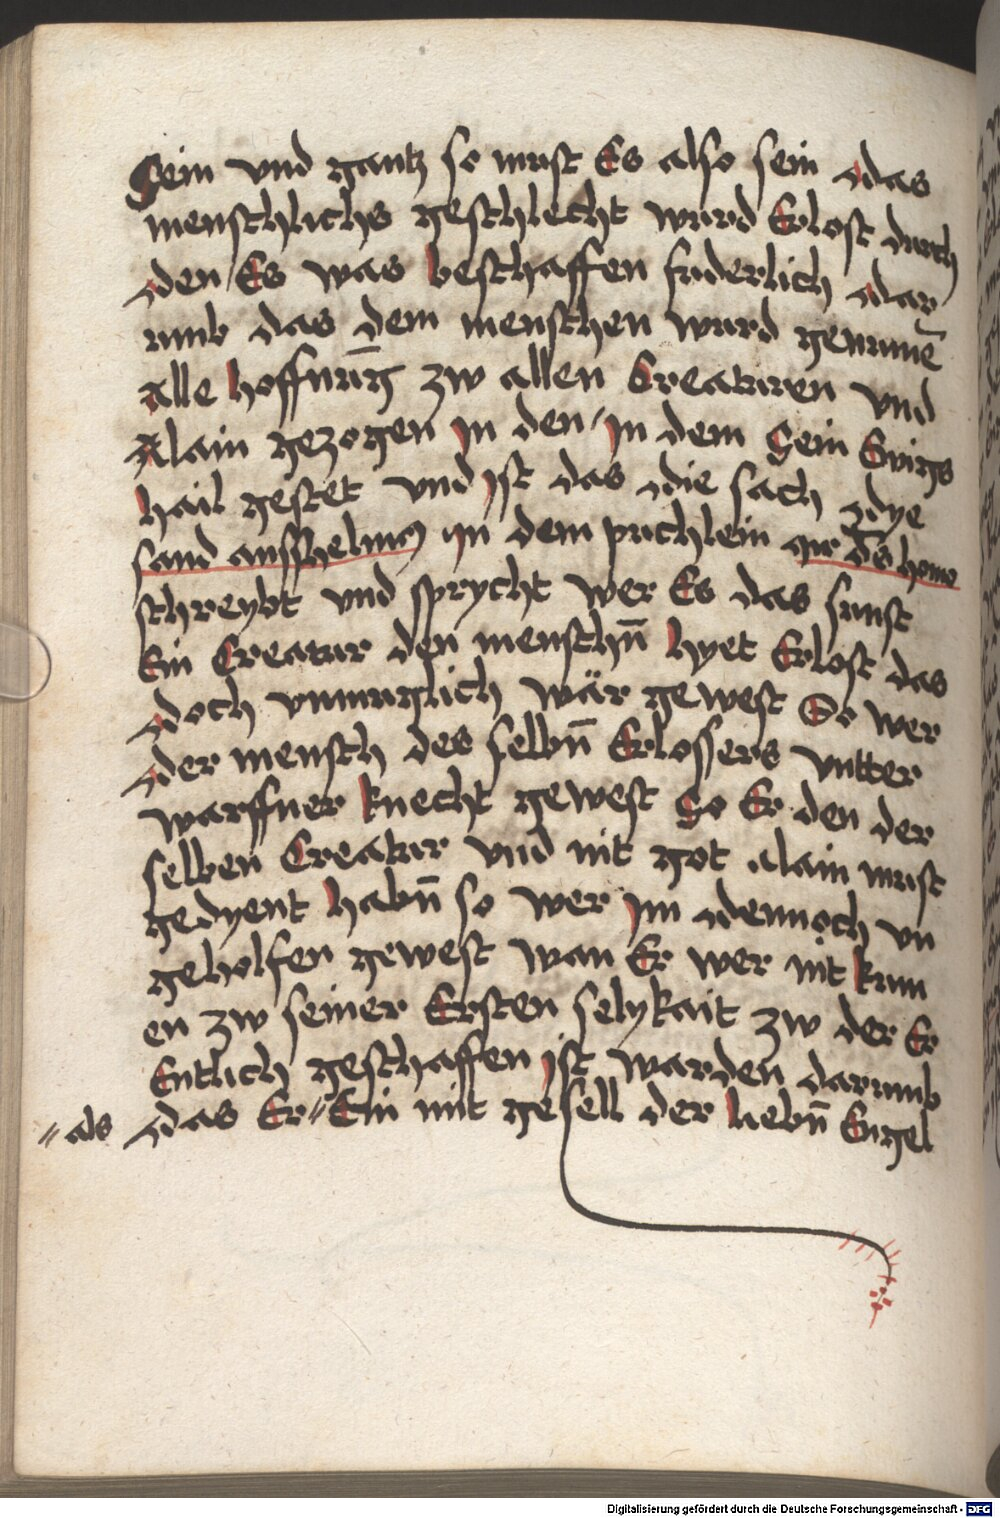 Sein vnd gantz so must Es also sein das
menschlichs geschlecht wurd Erlost durch
den Es was beschaffen suderlich dar
umb das dem menschen wurd genumē
alle hoffnūg zw allen Creaturen vnd
Alain gezogen in den in dem sein Ewigs
hail gestet vnd ist das die sach dye
sand annshelmus in dem puchlein cur ds̄ homo
schreybt vnd sprycht wer Es das sunst
Ein Creatur den menschn̄ hyet Erlost das
doch vnmuglich wär gewest So wer
der mensch des selbn̄ Erlossers vntter
warffner knecht gewest So Er den der
selben Creatur vnd nit got alain must
gedyent habn̄ so wer im dennoch vn
geholfen gewest wan Er wer nit kum
en zw seiner Ersten selykait zw der Er
Entlich geschaffen ist warden darumb
das Er〃Ein mit gesell der liebn̄ Engel
〃als
Digitalisierung gefördert durch die Deutsche Forschungsgemeinschaft - DFG